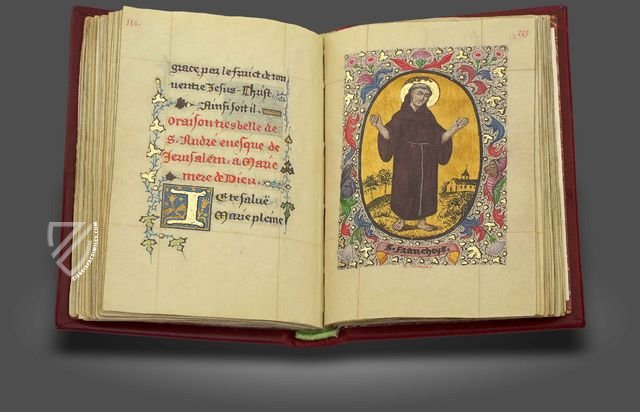 116.
grace par le fruict de ton
ventre Jesus-Christ.
Ainsi soit il.
Oraison tres belle de
S. André evesque de
Jerusalem, a Marie
mere de Dieu.
Je te saluë
Marie pleine
117.
S. Francheys.